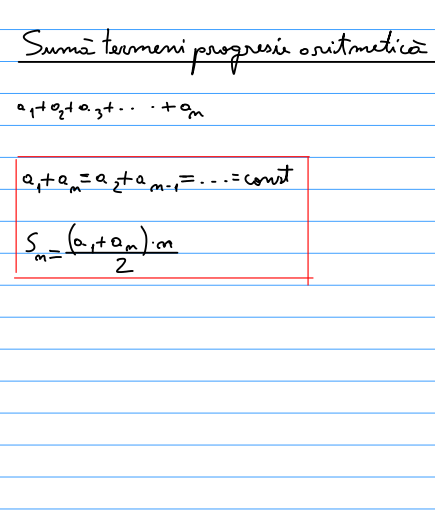 Sumă termeni progresie aritmetică
a₁+a₂+a₃+...·+aₙ
a₁+aₙ=a₂+aₙ₋₁=...=const
Sₙ=(a₁+aₙ)·n/2